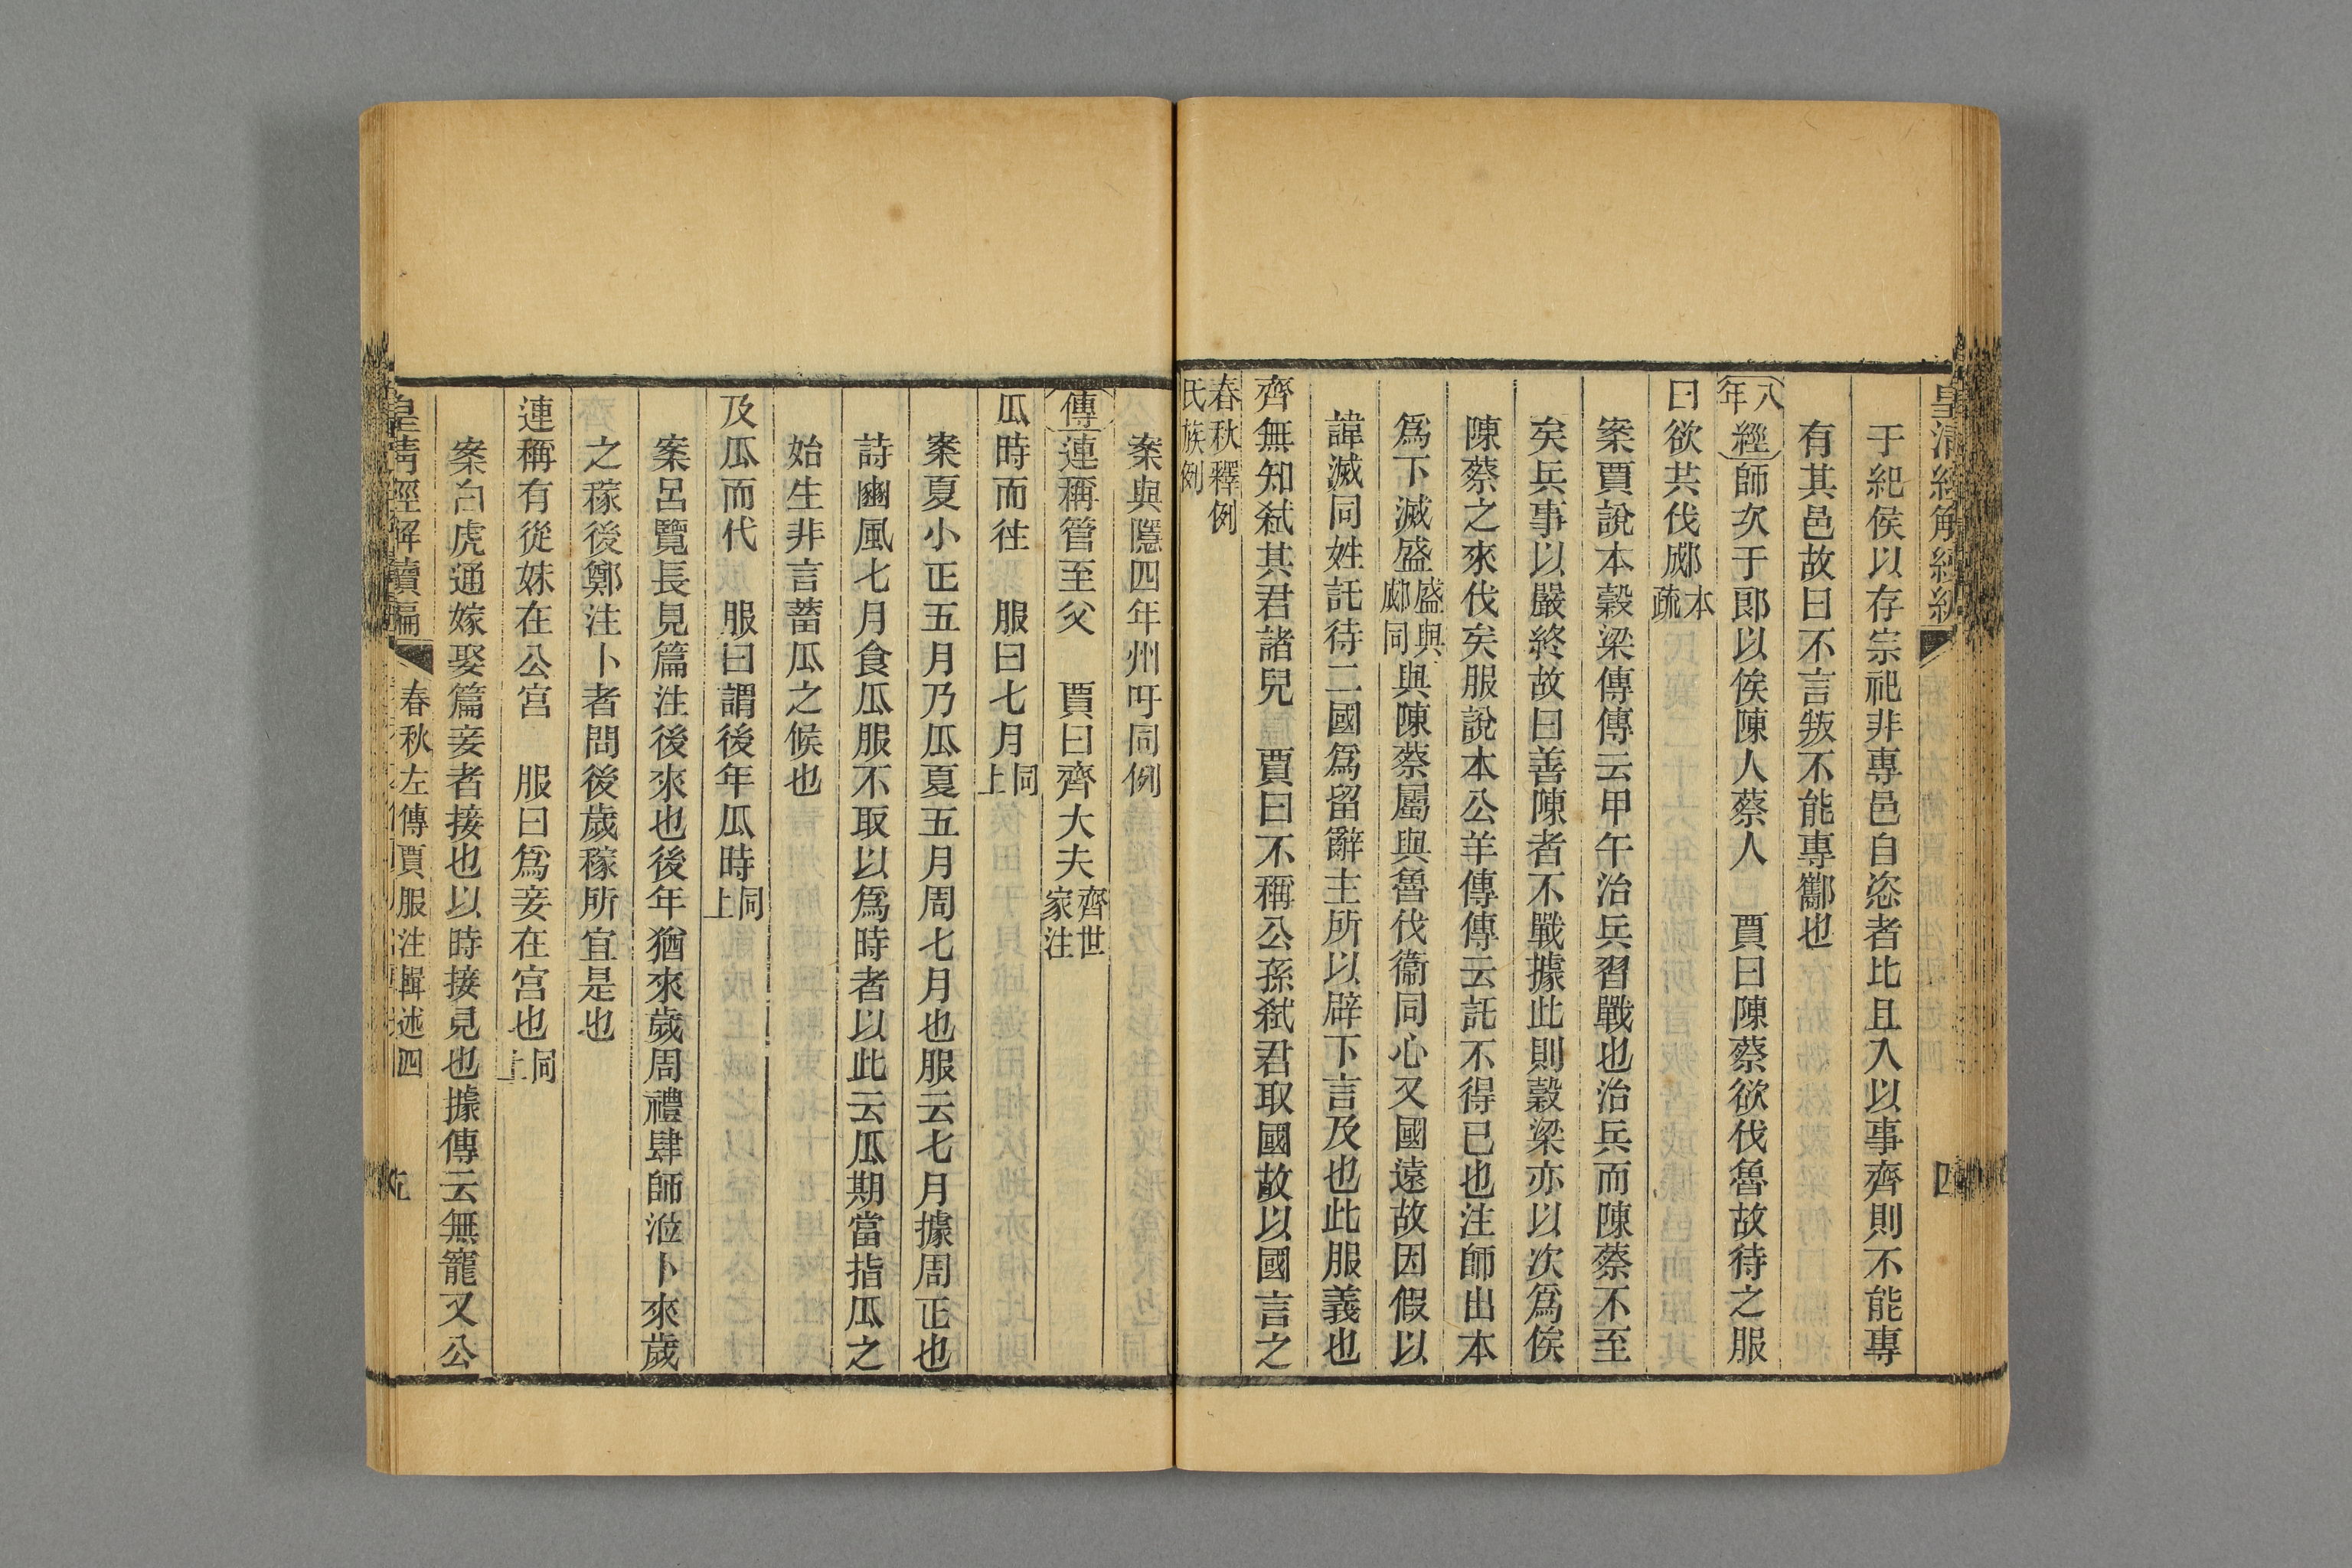 皇清經解續編
四
于紀侯以存宗祀非專邑自恣者比且入以事齊則不能專
有其邑故曰不言叛不能專酅也
八年經師次于郎以俟陳人蔡人　賈曰陳蔡欲伐魯故待之服
曰欲共伐郕本疏
案賈說本穀梁傳傳云甲午治兵習戰也治兵而陳蔡不至
矣兵事以嚴終故曰善陳者不戰據此則穀梁亦以次爲俟
陳蔡之來伐矣服說本公羊傳傳云託不得已也注師出本
爲下滅盛盛與郕同與陳蔡屬與魯伐衞同心又國遠故因假以
諱滅同姓託待二國爲留辭主所以辟下言及也此服義也
齊無知弒其君諸兒　賈曰不稱公孫弒君取國故以國言之
春秋釋例氏族例
案與隱四年州吁同例
傳連稱管至父　賈曰齊大夫齊世家注
瓜時而往　服曰七月同上
案夏小正五月乃瓜夏五月周七月也服云七月據周正也
詩豳風七月食瓜服不取以爲時者以此云瓜期當指瓜之
始生非言蓄瓜之候也
及瓜而代　服曰謂後年瓜時同上
案呂覽長見篇注後來也後年猶來歲周禮肆師涖卜來歲
之稼後鄭注卜者問後歲稼所宜是也
連稱有從妹在公宮　服曰爲妾在宮也同上
案白虎通嫁娶篇妾者接也以時接見也據傳云無寵又公
皇清經解續編
春秋左傳賈服注輯述四